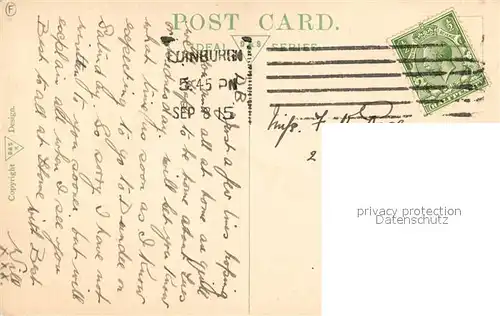 F
POST CARD.
IDEAL D&S SERIES.
EDINBURGH
5.45 PM
SEP 8 15
Copyright D&S Design.
Just a few lines hoping
you and all at home are quite
to be home about Tues
or Wednesday. will let you know
what time as soon as I know
expecting to go to Dundee on
Saturday. so sorry I have not
written to you sooner. but will
explain all when I see you
Best to all at Home with Best
Will
xxx
Miss
2
privacy protection
Datenschutz